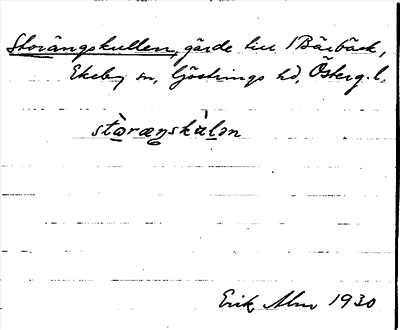 Storängskullen, gärde till 1 Bärbäck,
Ekeby sn, Göstrings hd, Österg. l.
stòrænskùlən
Erik Alm 1930